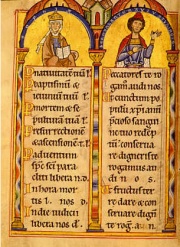 P natiuitatē tuā l.
P baptismū &
ieiuniū tuū l.
P mortem & se
pulturā tuā l.
P resurrectionē
& ascensionē t. l.
P aduentum
sp̄c sc̄i para
cliti libera n. d.
In hora mor
tis l. nos d.
In die iudicii
libera nos d.
Peccatores te ro
gam audi nos.
Ut cunctum po
pulū xp̄ianū
p̄cioso sangui
ne tuo redēp
tū conserua
re digneris te
rogamus au
di nos
Ut fructus ter
re dare & con
seruare dign̄
te rog. a. n.